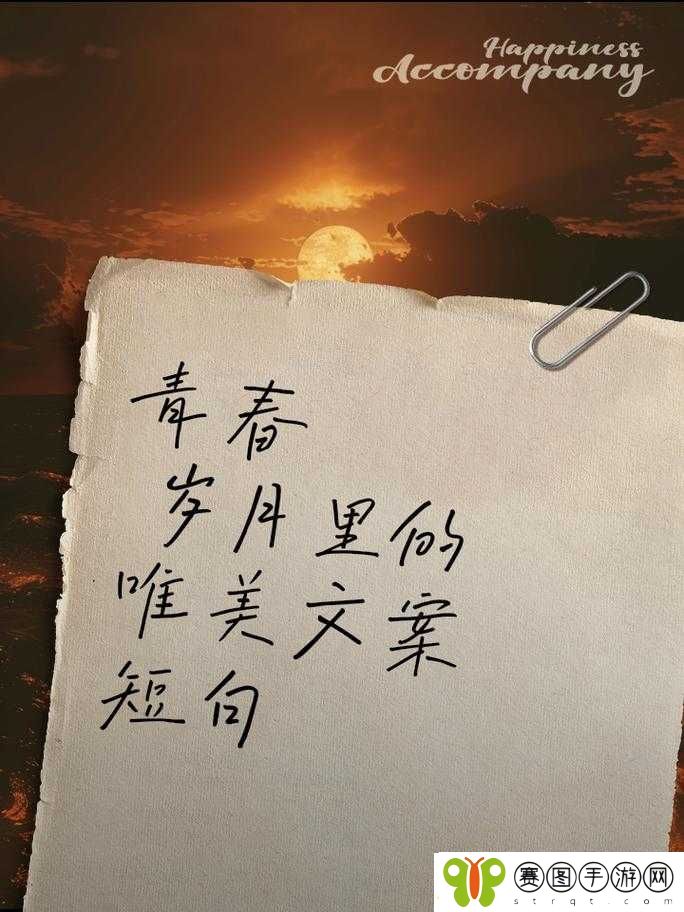 Happiness
Accompany
青春
岁月里的
唯美文案
短句
赛图手游网
strqt.com